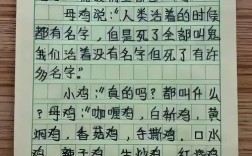 母鸡说:“人类活着的时候
都有名字,但是死了全部叫鬼
我们活着没有名字但死了有许
多名字。”
小鸡:“真的吗?都叫什么
?母鸡:“咖喱鸡,白斩鸡,黄
焖鸡,香菇鸡,手撕鸡,口水
鸡